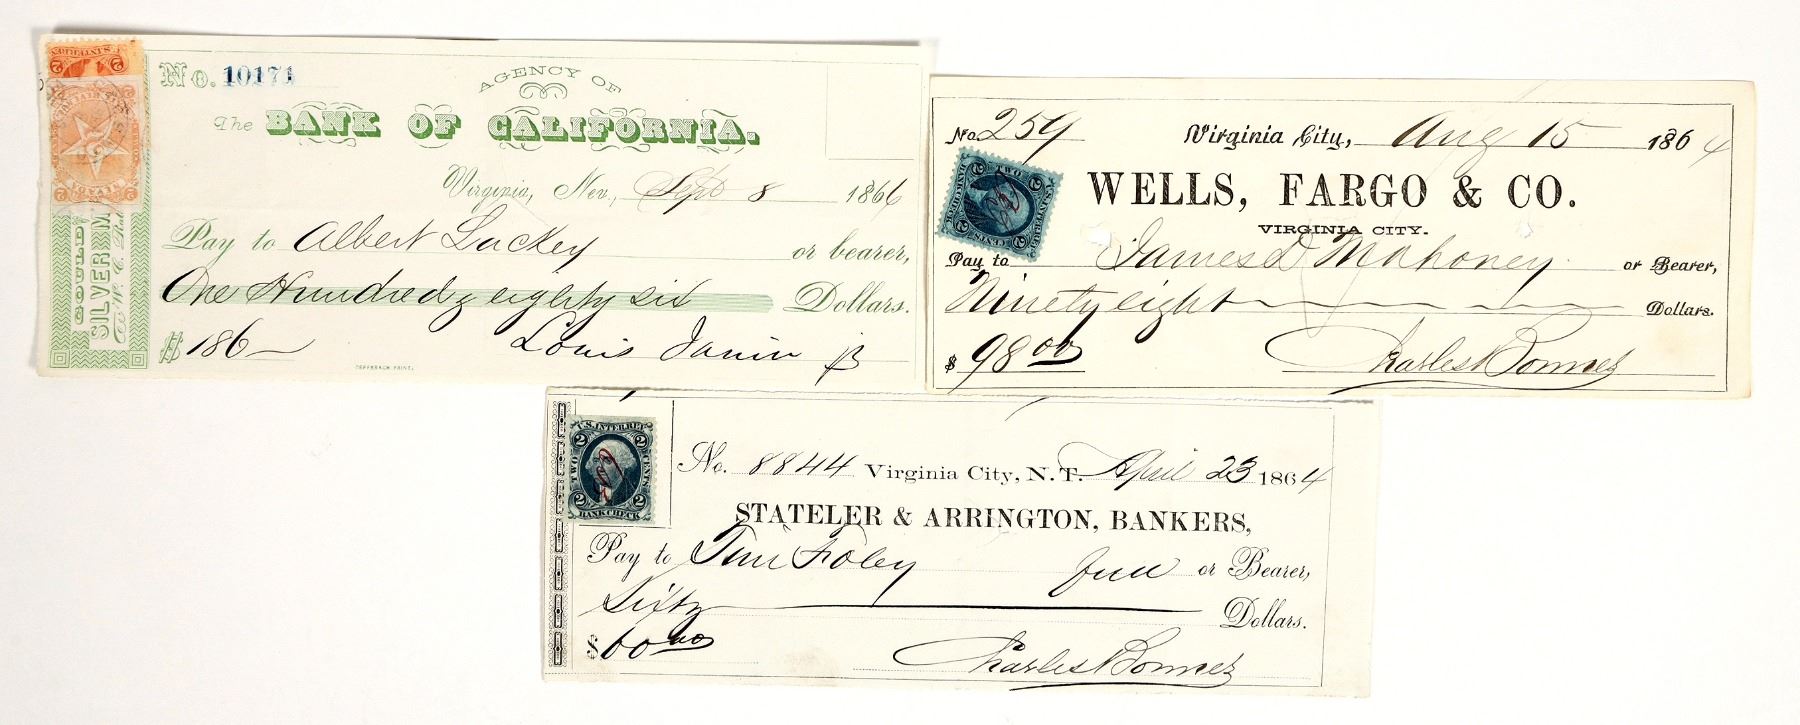 No. 10171
AGENCY OF
The BANK OF CALIFORNIA.
Virginia, Nev., Sept 8 1866
Pay to Albert Lackey or bearer,
One Hundred & eighty six Dollars.
$ 186 Louis Janin
GOULD
SILVER M
U.S. INTER. REV.
2 2
NEVADA
No. 259 Virginia City, Aug 15 1864
WELLS, FARGO & CO.
VIRGINIA CITY.
Pay to James D Mahoney or Bearer,
Ninety eight Dollars.
$ 98 00 Charles Bonner
U.S. INTER. REV.
2 2
TWO CENTS
BANK CHECK
2 2
No. 8844 Virginia City, N. T. April 23 1864
STATELER & ARRINGTON, BANKERS,
Pay to Tim Foley or Bearer,
Sixty Dollars.
$ 60 00 Charles Bonner
U.S. INTER. REV.
2 2
TWO CENTS
2 2
BANK CHECK